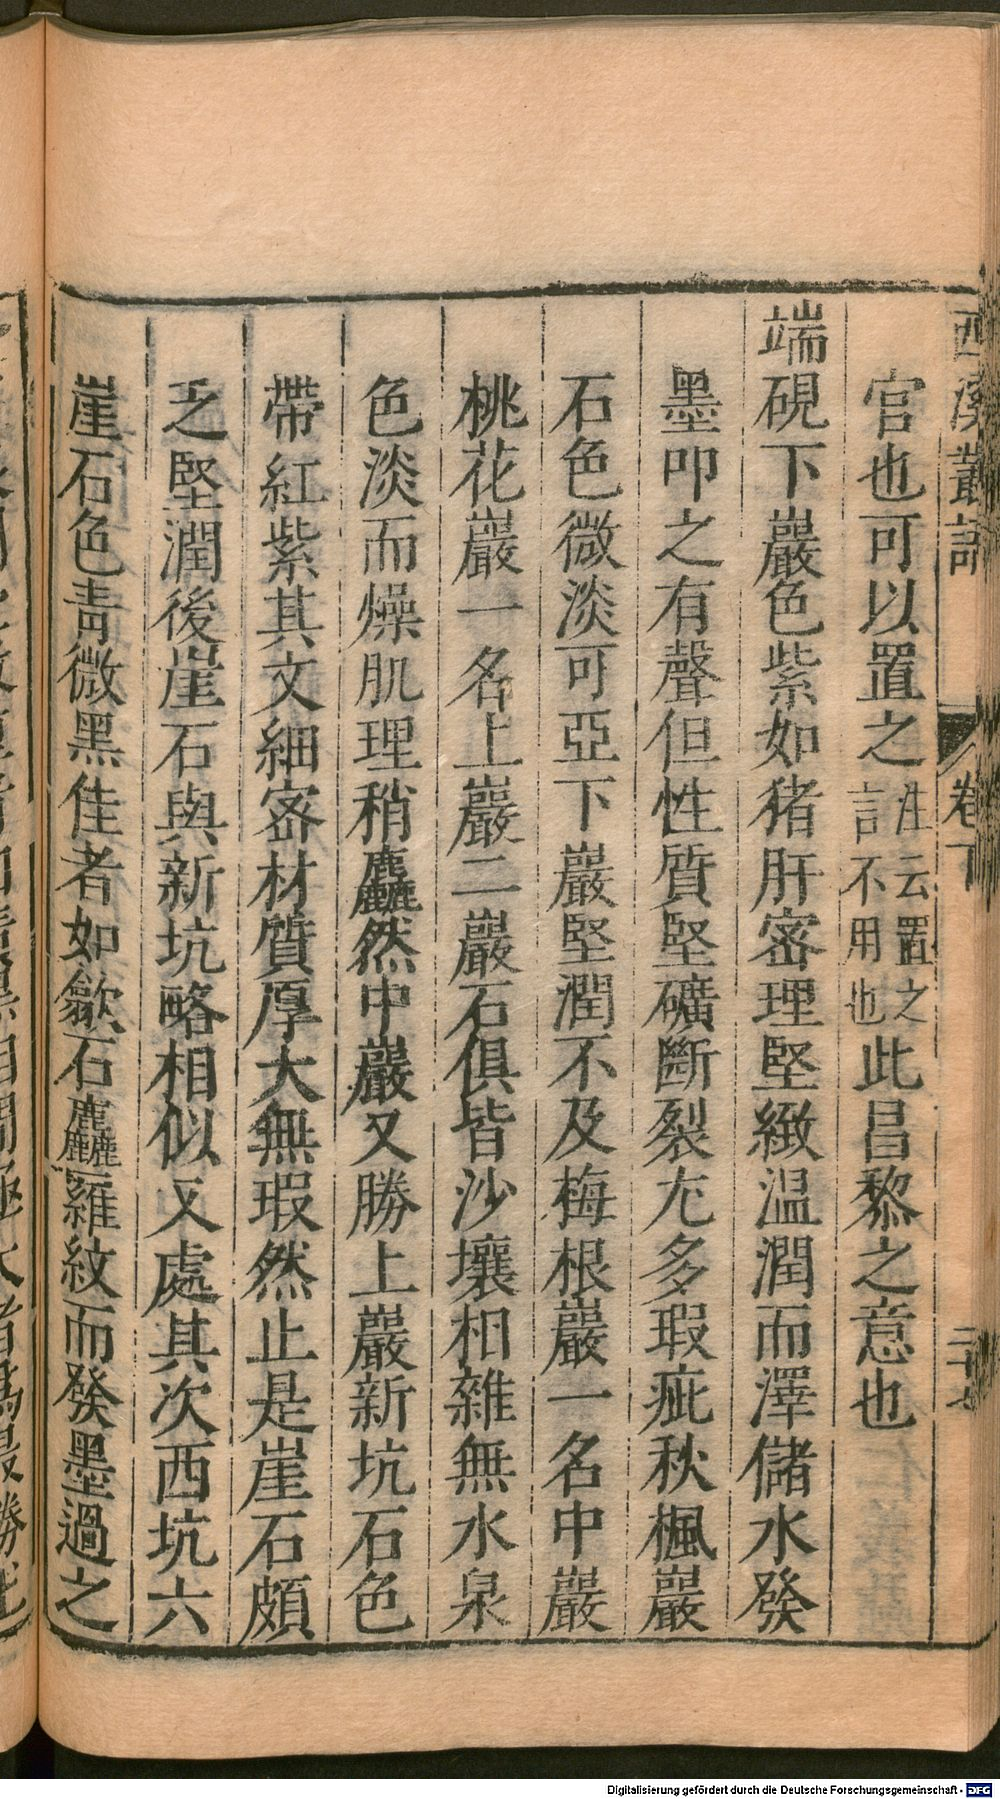 西溪叢語
卷下
官也可以置之注云置之言不用也此昌黎之意也
端硯下巖色紫如猪肝密理堅緻温潤而澤儲水發
墨叩之有聲但性質堅礦斷裂尤多瑕疵秋楓巖
石色微淡可亞下巖堅潤不及梅根巖一名中巖
桃花巖一名上巖二巖石俱皆沙壤相雜無水泉
色淡而燥肌理稍麤然中巖又勝上巖新坑石色
帶紅紫其文細密材質厚大無瑕然止是崖石頗
乏堅潤後崖石與新坑略相似又處其次西坑六
崖石色青微黑佳者如歙石麤羅紋而發墨過之
Digitalisierung gefördert durch die Deutsche Forschungsgemeinschaft - DFG